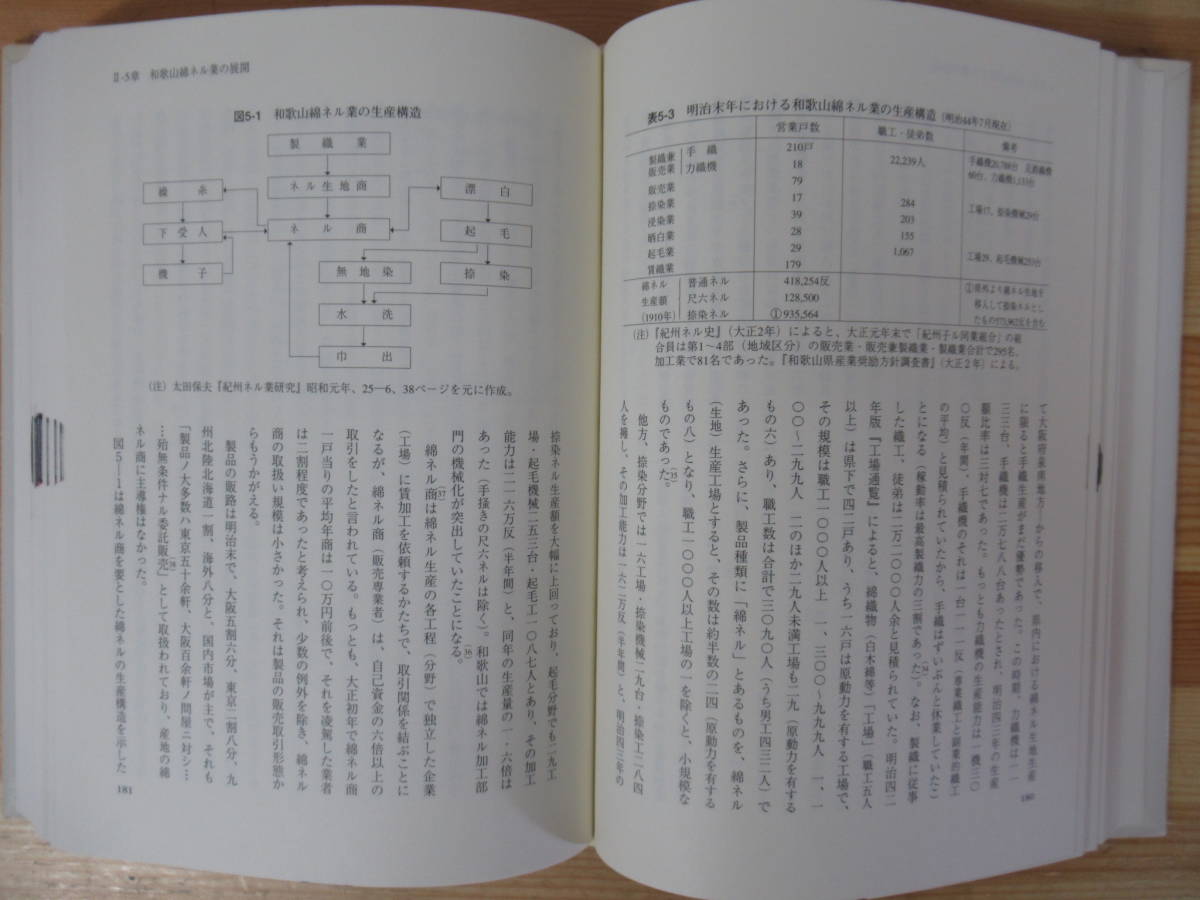 表5-3 明治末年における和歌山綿ネル業の生産構造(明治44年7月現在)
営業戸数 職工・徒弟数 備考
製織兼販売業 手織 210戸 22,239人
力織機 18
販売業 79
捺染業 17 284 工場17、捺染機械29台
浸染業 39 203
晒白業 28 155
起毛業 29 1,067 工場29、起毛機械253台
賃織業 179
綿ネル 普通ネル 418,254反
生産額 尺六ネル 128,500
(1910年) 捺染ネル ①935,564
①県外より綿ネル生地を
移入して捺染ネルとし
(注)『紀州ネル史』(大正2年)によると、大正元年末で「紀州ネル同業組合」の組
合員は第1〜4部(地域区分)の販売業・販売兼製織業・製織業合計で295名、
加工業で81名であった。『和歌山県産業奨励方針調査書』(大正2年)による。
て大阪府泉南地方)からの移入で、県内における綿ネル生地生産
に限ると手織生産がまだ優勢であった。この時期、力織機は一一
三三台、手織機は二万七八八台あったとされ、明治四三年の生産
額比率は三対七であった。もっとも力織機の生産能力は一機三〇
〇反(年間)、手織機のそれは一台一一一反(専業織工と副業的織工
の平均)と見積られていたから、手織はずいぶんと休業していたこ
とになる(稼動率は最高製織力の三割であった)。なお、製織に従事
した織工、徒弟は二万二〇〇〇人余と見積られていた。明治四二
年版『工場通覧』によると、綿織物(白木綿等)「工場」(職工五人
以上)は県下で四二戸あり、うち一六戸は原動力を有する工場で、
その規模は職工一〇〇〇人以上 一、三〇〇〜九九九人 一、一
〇〇〜二九九人 二のほか二九人未満工場も二九(原動力を有する
もの六)あり、職工数は合計で三〇九〇人(うち男工四三二人)で
あった。さらに、製品種類に「綿ネル」とあるものを、綿ネル
(生地)生産工場とすると、その数は約半数の二四(原動力を有する
もの八)となり、職工一〇〇〇人以上工場の一を除くと、小規模な
ものであった。(35)
他方、捺染分野では一六工場・捺染機械二九台・捺染工二八四
人を擁し、その加工能力は一六二万反(半年間)と、明治四三年の
180
Ⅱ-5章 和歌山綿ネル業の展開
図5-1 和歌山綿ネル業の生産構造
製織業
ネル生地商
ネル商
綛糸
下受人
機子
漂白
起毛
捺染
無地染
水洗
巾出
(注)太田保夫『紀州ネル業研究』昭和元年、25―6、38ページを元に作成。
捺染ネル生産額を大幅に上回っており、起毛分野でも二九工
場・起毛機械二五三台・起毛工一〇八七人とあり、その加工
能力は二一六万反(半年間)と、同年の生産量の一・六倍は
あった(手掻きの尺六ネルは除く)。和歌山では綿ネル加工部
門の機械化が突出していたことになる。(36)
綿ネル商(37)は綿ネル生産の各工程(分野)で独立した企業
(工場)に賃加工を依頼するかたちで、取引関係を結ぶことに
なるが、綿ネル商(販売専業者)は、自己資金の六倍以上の
取引をしたと言われている。もっとも、大正初年で綿ネル商
一戸当りの平均年商は一〇万円前後で、それを凌駕した業者
は二割程度であったと考えられ、少数の例外を除き、綿ネル
商の取扱い規模は小さかった。それは製品の販売取引形態か
らもうかがえる。
製品の販路は明治末で、大阪五割六分、東京二割八分、九
州北陸北海道一割、海外八分と、国内市場が主で、それも
「製品ノ大多数ハ東京五十余軒、大阪百余軒ノ問屋ニ対シ…
…殆無条件ナル委託販売」(38)として取扱われており、産地の綿
ネル商に主導権はなかった。
図5―1は綿ネル商を要とした綿ネルの生産構造を示した
181